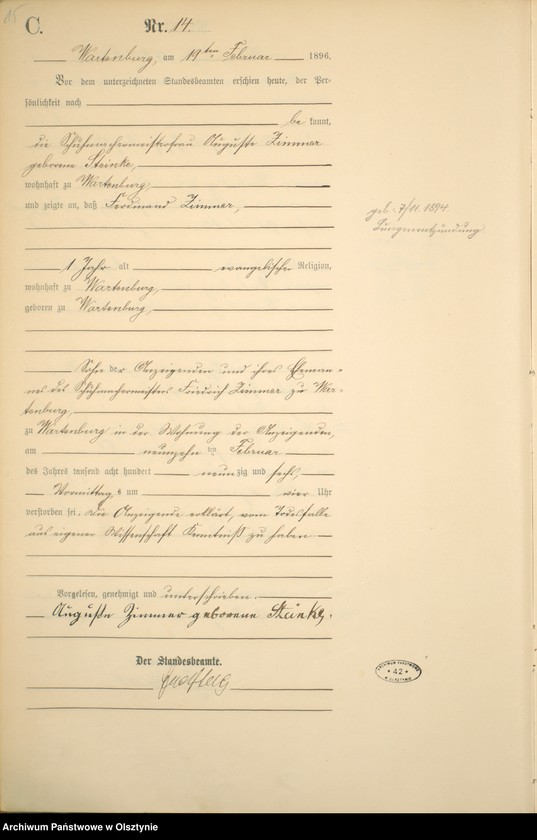 15
C.
Nr. 14.
Wartenburg, am 19ten Februar 1896.
Vor dem unterzeichneten Standesbeamten erschien heute, der Per-
sönlichkeit nach
be kannt,
die Schuhmachermeisterfrau Auguste Zimmer
geborene Steinke,
wohnhaft zu Wartenburg,
und zeigte an, daß Ferdinand Zimmer,
geb. 7/11. 1894.
Lungenentzündung
1 Jahr alt evangelischer Religion,
wohnhaft zu Wartenburg,
geboren zu Wartenburg,
Sohn der Anzeigenden und ihres Eheman-
nes des Schuhmachermeisters Friedrich Zimmer zu War-
tenburg,
zu Wartenburg in der Wohnung der Anzeigenden,
am neunzehn ten Februar
des Jahres tausend acht hundert neunzig und sechs,
Vormittags um vier Uhr
verstorben sei. Die Anzeigende erklärt, vom Todesfalle
aus eigener Wissenschaft Kenntniß zu haben
Vorgelesen, genehmigt und unterschrieben.
Auguste Zimmer geborene Steinke.
Der Standesbeamte.
ARCHIWUM PAŃSTWOWE
42
W OLSZTYNIE
Archiwum Państwowe w Olsztynie